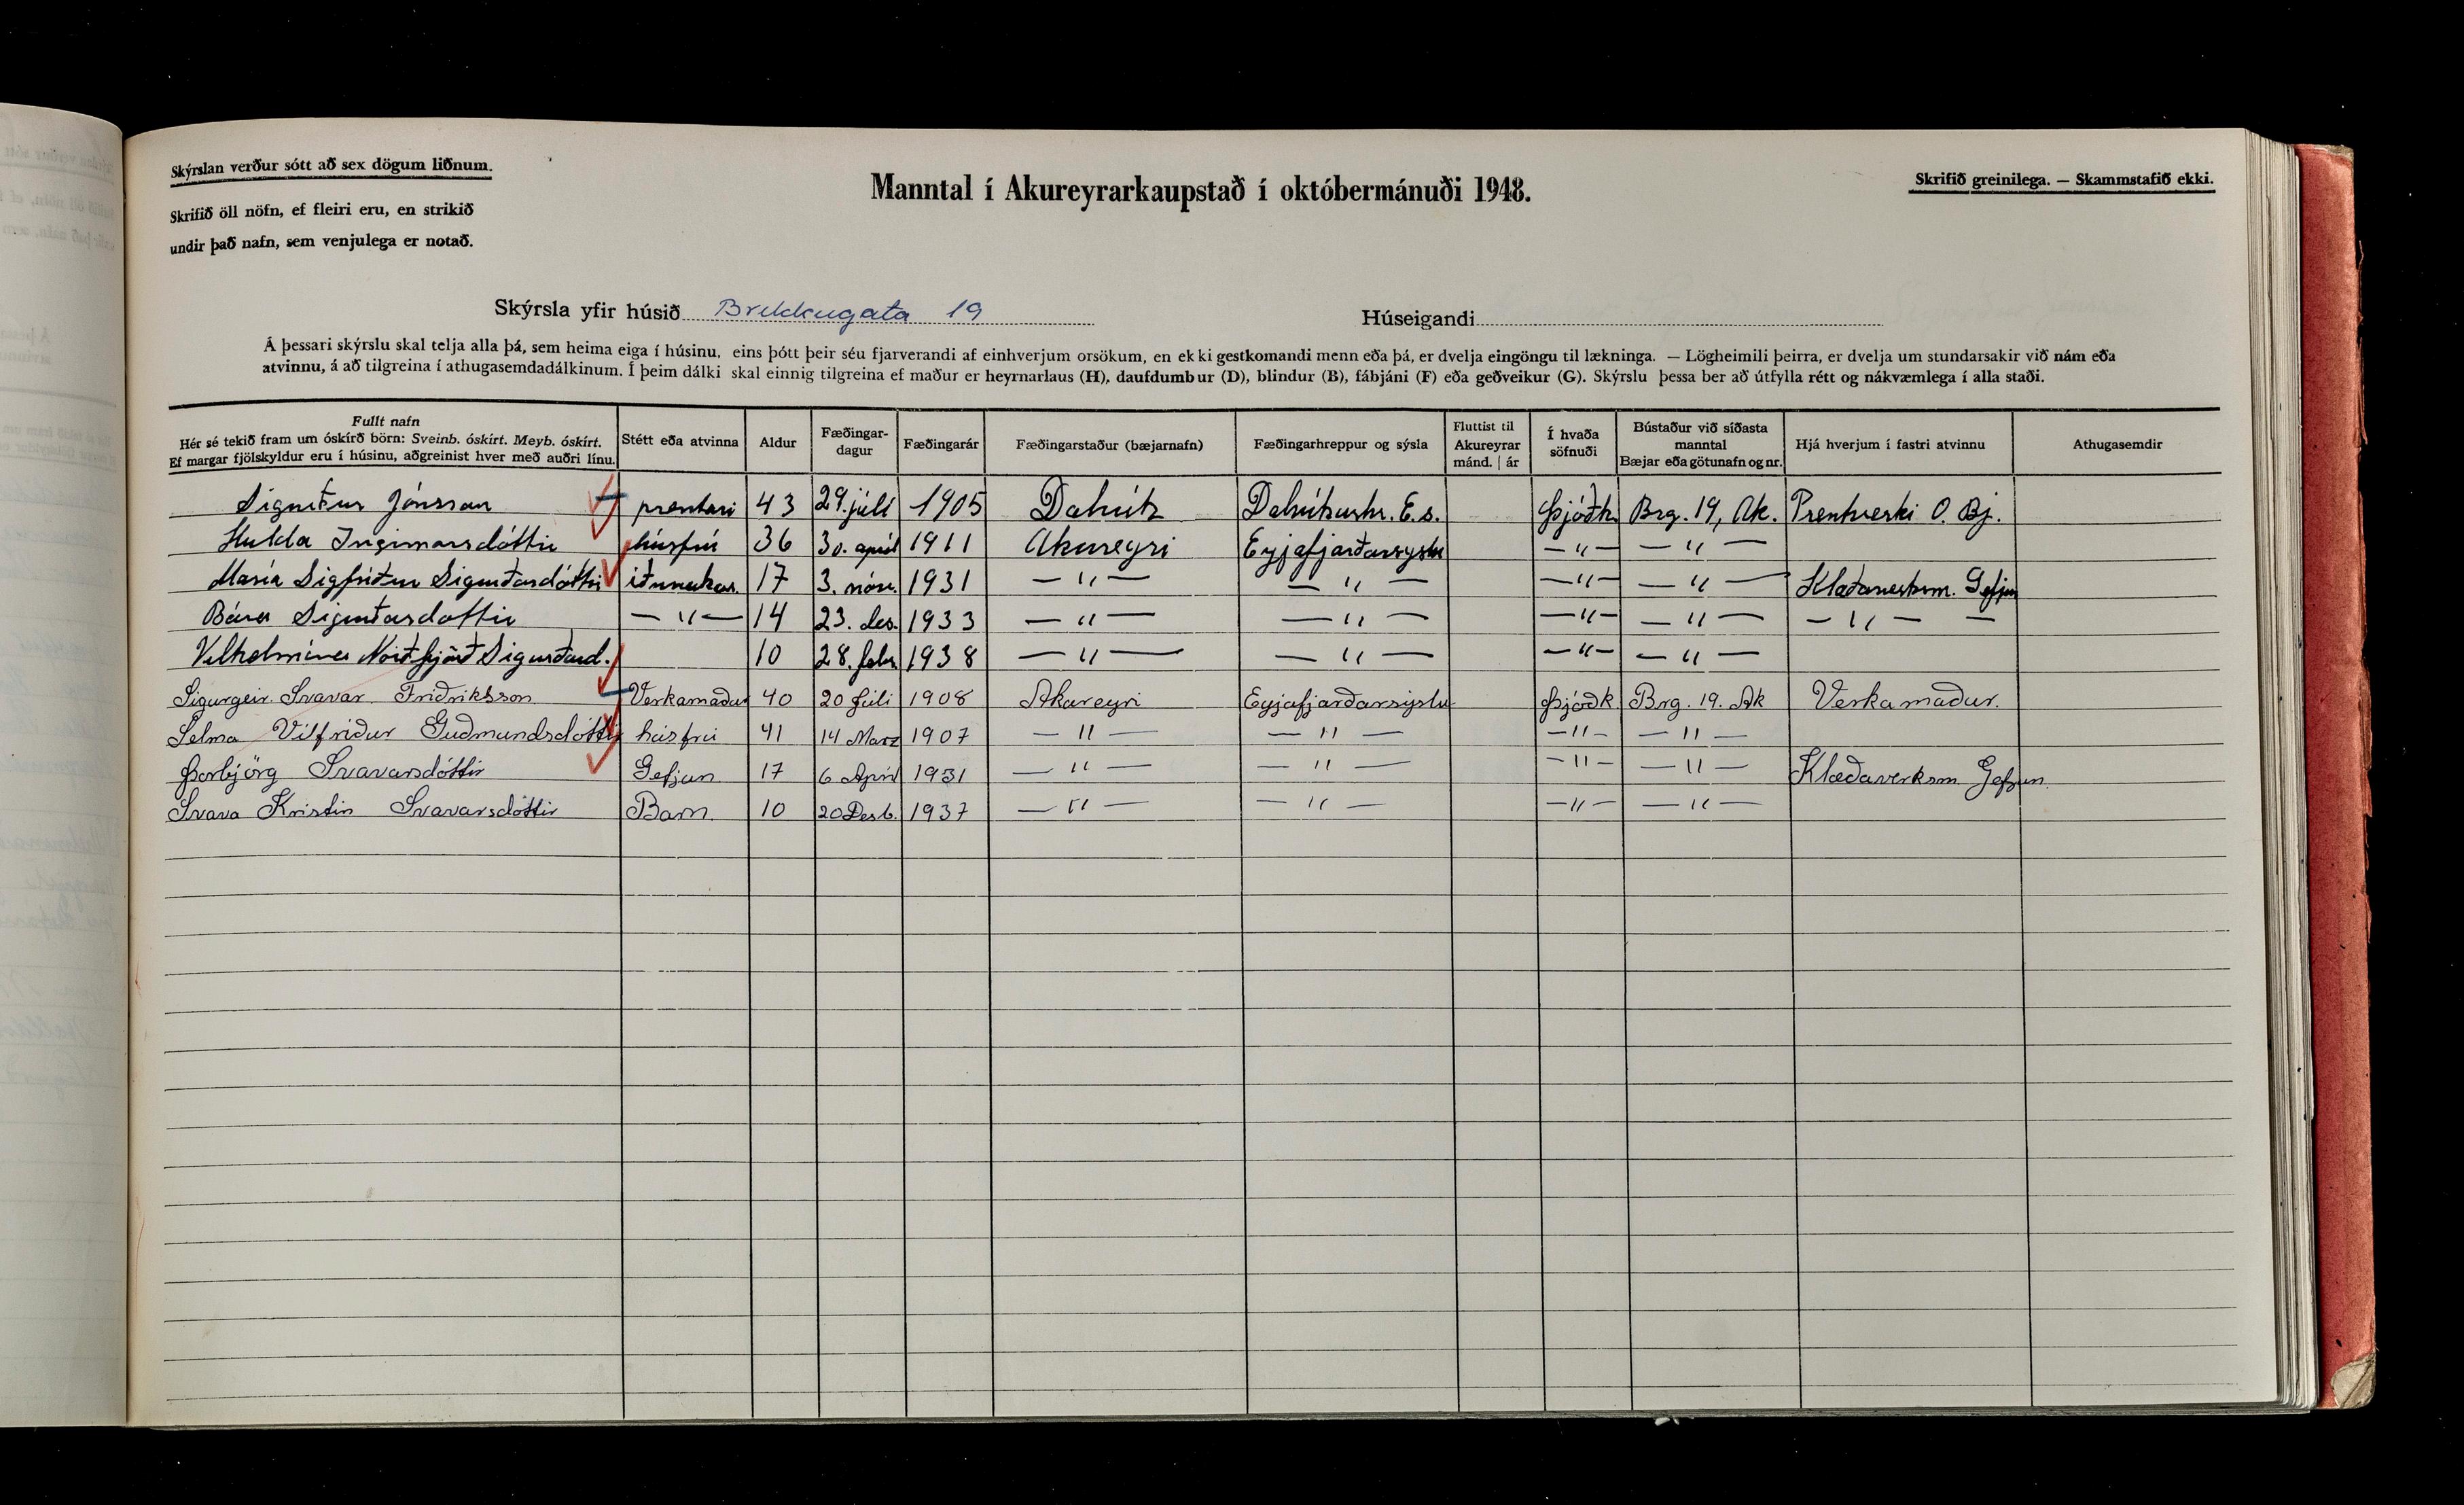 Skýrslan verður sótt að sex dögum liðnum.
Skrifið öll nöfn, ef fleiri eru, en strikið
undir það nafn, sem venjulega er notað.
Manntal í Akureyrarkaupstað í októbermánuði 1948.
Skrifið greinilega. — Skammstafið ekki.
Skýrsla yfir húsið Brekkugata 19 Húseigandi
Á þessari skýrslu skal telja alla þá, sem heima eiga í húsinu, eins þótt þeir séu fjarverandi af einhverjum orsökum, en ekki gestkomandi menn eða þá, er dvelja eingöngu til lækninga. — Lögheimili þeirra, er dvelja um stundarsakir við nám eða
atvinnu, á að tilgreina í athugasemdadálkinum. Í þeim dálki skal einnig tilgreina ef maður er heyrnarlaus (H), daufdumbur (D), blindur (B), fábjáni (F) eða geðveikur (G). Skýrslu þessa ber að útfylla rétt og nákvæmlega í alla staði.
Fullt nafn
Hér sé tekið fram um óskírð börn: Sveinb. óskírt. Meyb. óskírt.
Ef margar fjölskyldur eru í húsinu, aðgreinist hver með auðri línu.
Stétt eða atvinna
Aldur
Fæðingar-
dagur
Fæðingarár
Fæðingarstaður (bæjarnafn)
Fæðingarhreppur og sýsla
Fluttist til
Akureyrar
mánd. | ár
Í hvaða
söfnuði
Bústaður við síðasta
manntal
Bæjar eða götunafn og nr.
Hjá hverjum í fastri atvinnu
Athugasemdir
Sigurður Jónsson prentari 43 29. júlí 1905 Dalvík Dalvíkurhr. E.s. Þjóðk. Brg. 19, Ak. Prentverki O. Bj.
Hulda Ingimarsdóttir húsfrú 36 30. apríl 1911 Akureyri Eyjafjarðarsýslu — " — — " —
María Sigfríður Sigurðardóttir iðnverkas. 17 3. nóv. 1931 — " — — " — — " — — " — Klæðaverksm. Gefjun
Bára Sigurðardóttir — " — 14 23. des. 1933 — " — — " — — " — — " — — " — —
Vilhelmína Norðfjörð Sigurðard. 10 28. febr. 1938 — " — — " — — " — — " —
Sigurgeir Svavar Friðriksson Verkamaður 40 20 Júli 1908 Akureyri Eyjafjarðarsýslu Þjóðk Brg. 19. Ak Verkamaður.
Selma Vilfríður Guðmundsdóttir húsfrú 41 14 Marz 1907 — " — — " — — " — — " —
Þorbjörg Svavarsdóttir Gefjun 17 6 Apríl 1931 — " — — " — — " — — " — Klæðaverksm. Gefjun.
Svava Kristín Svavarsdóttir Barn 10 20 Desb. 1937 — " — — " — — " — — " —